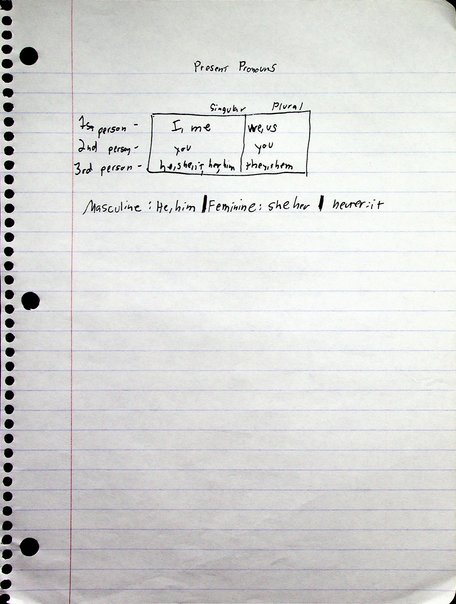 Present Pronouns
Singular Plural
1st person - I, me we, us
2nd person - you you
3rd person - he, she, it, her, him they, them
Masculine : He, him | Feminine : she her | neuter : it